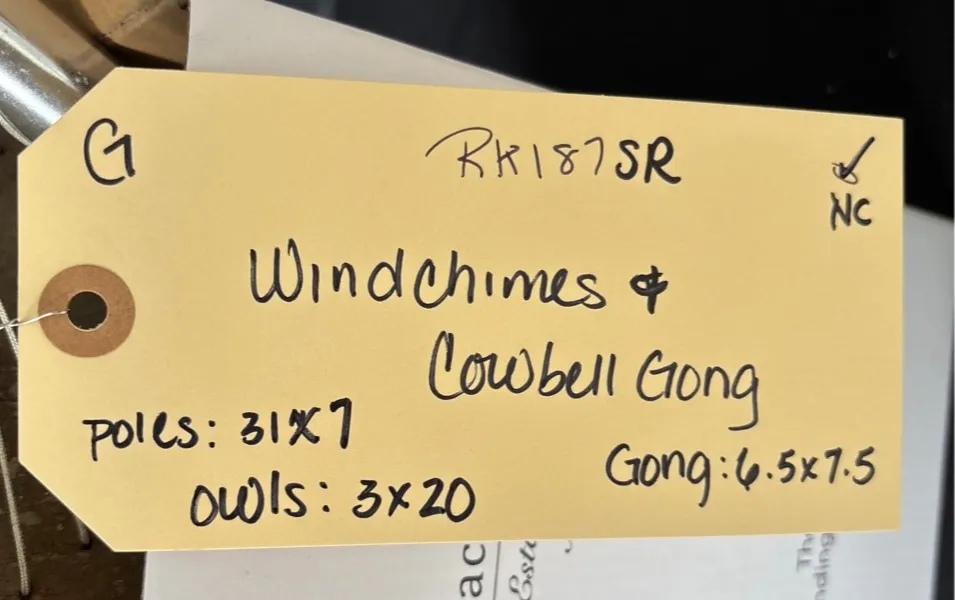 G RK187SR ✓
NC
Windchimes &
Cowbell Gong
Poles: 31x7
Gong: 6.5x7.5
Owls: 3x20
ac
Este
Th
nding